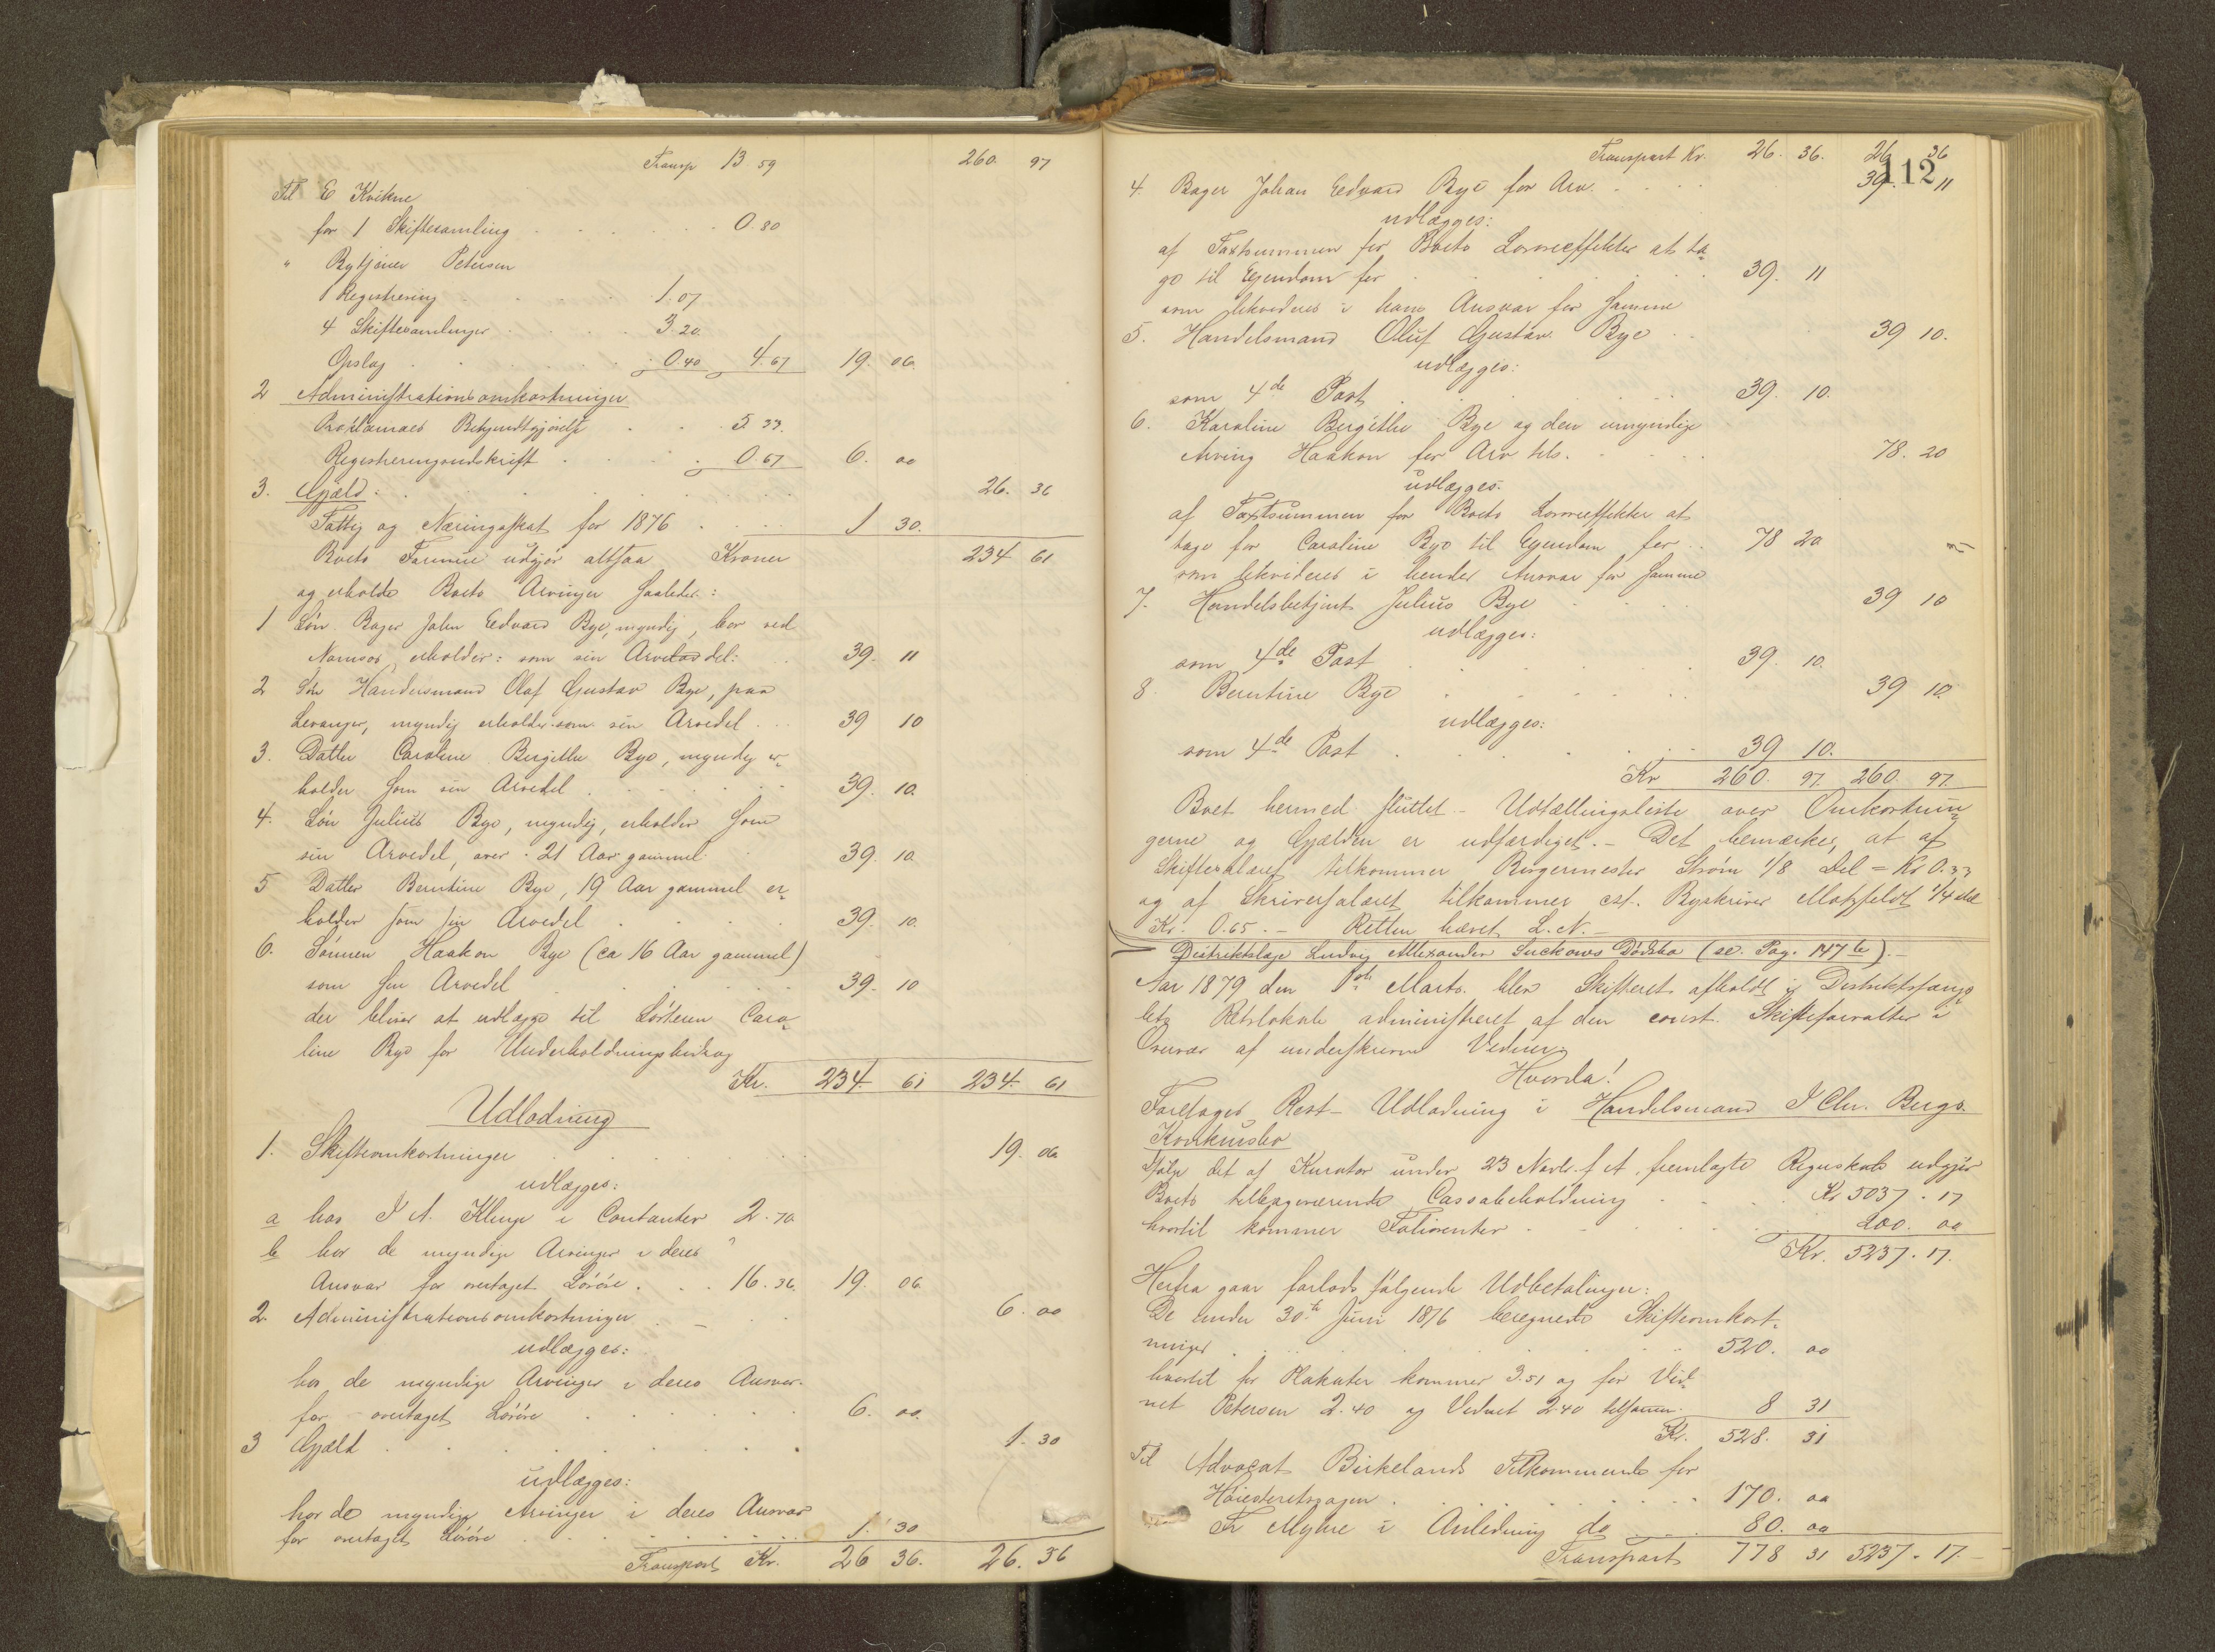 Transp 13 59 260. 97
Til E Kvikne
for 1 Skiftesamling 0.80
" Bytjener Petersen
1 Registrering 1.07
4 Skiftesamlinger 3.20
Opslag 0.40 4.67 19. 06.
2 Administrationsomkostninger
Proklamaets Bekjendtgjørelse 5 33.
Registreringsudskrift 0.67 6. 00
3. Gjæld: 26. 36
Fattig og Næringsskat for 1876 1 30.
Boets Formue udgjør altsaa Kroner 234 61
og erholde Boets Arvinger saaledes:
1 Søn Bager Johan Edvard Bye, myndig, bor ved
Namsos, erholder: som sin Arvelod del: 39. 11
2 Søn Handelsmand Olaf Gustav Bye, paa
Levanger, myndig erholder som sin Arvedel 39 10
3. Datter Caroline Bergitte Bye, myndig er-
holder som sin Arvedel 39. 10.
4. Søn Julius Bye, myndig, erholder som
sin Arvedel, over 21 Aar gammel 39. 10
5 Datter Berntine Bye, 19 Aar gammel er-
holder som sin Arvedel 39. 10.
6. Sønnen Haakon Bye (ca 16 Aar gammel)
som sin Arvedel 39. 10
der bliver at udlægge til Søsteren Caro-
line Bye for Underholdningsbidrag
Kr. 234 61 234. 61
Udlodning
1. Skifteomkostninger 19. 06
udlægges:
a hos I A. Klinge i Contanter 2.70
b hos de myndige Arvinger i deres
Ansvar for overtaget Løsøre 16.36. 19. 06
2. Administrationsomkostninger 6. 00
udlægges:
hos de myndige Arvinger i deres Ansvar
for overtaget Løsøre 6. 00.
3 Gjæld 1. 30
udlægges:
hos de myndige Arvinger i deres Ansvar
for overtaget Løsøre 1. 30
Transport Kr. 26 36. 26. 36
Transport Kr. 26. 36. 26 36
112
4. Bager Johan Edvard Bye for Arv 39. 11
udlægges:
af Taxtsummen for Boets Løsøreeffekter at ta-
ge til Ejendom for 39. 11
som likvideres i hans Ansvar for samme
5. Handelsmand Oluf Gustav Bye 39 10.
udlægges:
som 4de Post 39. 10.
6. Karoline Bergitte Bye og den umyndige
Arving Haakon for Arv tils. 78. 20
udlægges.
af Taxtsummen for Boets Løsøreeffekter at
tage for Caroline Bye til Ejendom for 78 20
som likvideres i hendes Ansvar for samme
7. Handelsbetjent Julius Bye 39 10
udlægges:
som 4de Post 39. 10.
8. Berntine Bye 39 10.
udlægges:
som 4de Post 39 10.
Kr 260. 97 260. 97.
Boet hermed sluttet - Udtællingsliste over Omkostnin-
gerne og Gjælden er udfærdiget. - Det bemærkes, at af
Skiftesalæret tilkommer Borgermester Strøm 1/8 Del = Kr 0.33
og af Skriversalæret tilkommer cst. Byskriver Motzfeldt 1/4 del
Kr. 0.65. - Retten hævet L. N. -
Distriktslæge Ludvig Allexander Suckows Dødsbo (se. Pag. 147 b). -
Aar 1879 den 1ste Marts blev Skifteret afholdt i Distriktsfængs-
lets Retslokale administreret af den const. Skifteforvalter i
Overvær af underskrevne Vidner.
Hvorda!
Foretages Rest- Udlodning i Handelsmand I Chr. Bergs.
Konkursbo
Ifølge det af Kurator under 23 Novb. f A. fremlagte Regnskab udgjør
Boets tilbageværende Cassabeholdning Kr 5037. 17
hvortil kommer Folierenter 200. 00
Kr. 5237. 17.
Herfra gaar forlods følgende Udbetalinger:
De under 30te Juni 1876 beregnede Skifteomkost-
ninger 520. 00
hvortil for Plakater kommer 3.51 og for Vid-
net Petersen 2.40 og Vidnet 2.40 tilsammen. 8 31
Kr. 528. 31
Til Advocat Birkelands Tilkommende for
Høiesteretssagen 170. 00
Fr Myhre i Anledning do 80. 00
Transport 778 31 5237. 17. -